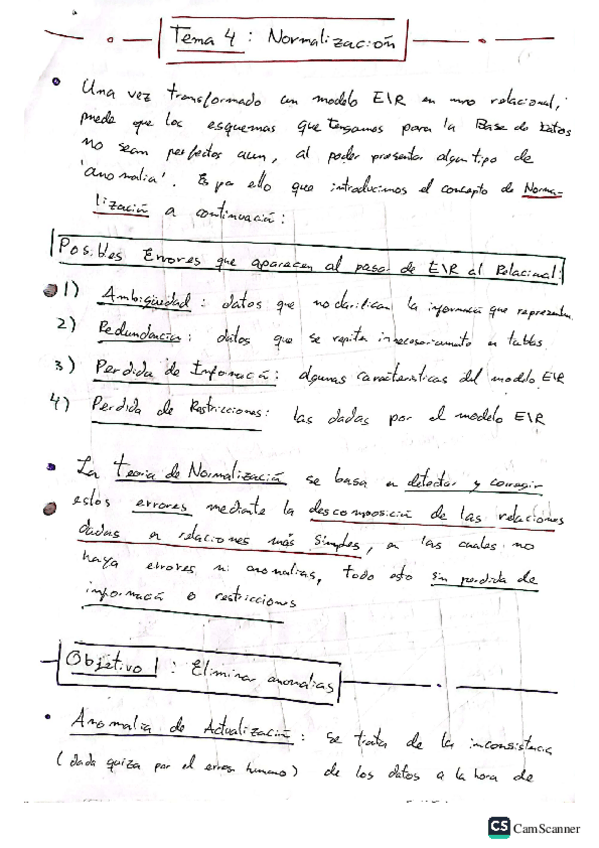 Tema 4 : Normalización
Una vez transformado un modelo E\R en uno relacional,
puede que los esquemas que tengamos para la Base de Datos
no sean perfectos aun, al poder presentar algun tipo de
'anomalia'. Es por ello que introducimos el concepto de Norma-
lización a continuación :
Posibles Errores que aparecen al pasar de E\R al Relacional:
1) Ambigüedad : datos que no clarifican la información que representan
2) Redundancia : datos que se repiten innecesariamente en tablas
3) Perdida de Información : algunas características del modelo E\R
4) Perdida de Restricciones : las dadas por el modelo E\R
La teoria de Normalización se basa en detectar y corregir
estos errores mediante la descomposición de las relaciones
dadas en relaciones más simples, en las cuales no
haya errores ni anomalias, todo esto sin perdida de
información o restricciones
Objetivo 1 : Eliminar anomalias
Anomalia de Actualización : se trata de la inconsistencia
(dada quiza por el error humano) de los datos a la hora de
CS CamScanner